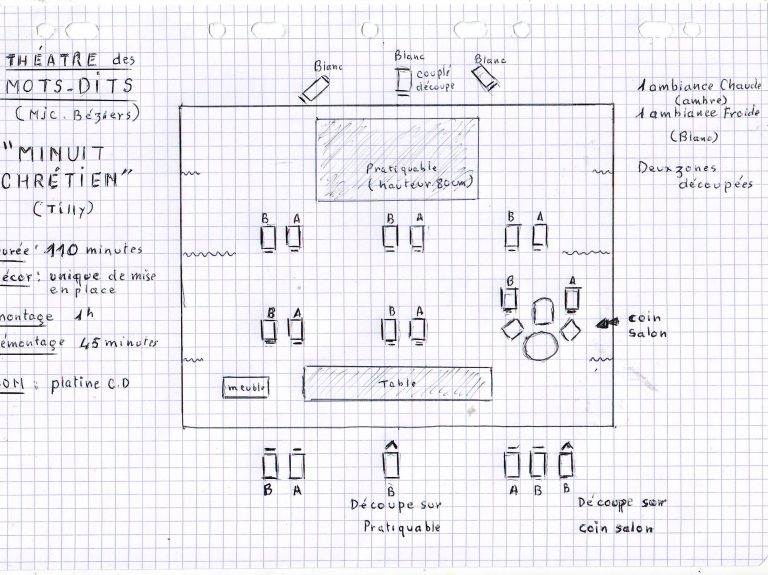 THÉATRE des
MOTS-DITS
(MJC. Béziers)
"MINUIT
CHRÉTIEN"
(Tilly)
urée : 110 minutes
écor : unique de mise
en place
montage 1h
émontage 45 minutes
SOM : platine C.D
Blanc
Blanc
couplé
découpe
Blanc
1 ambiance Chaude
(ambre)
1 ambiance Froide
(Blanc)
Deux zones
découpées
Pratiquable
(hauteur 80cm)
B A
B A
B A
B A
B A
B A
coin
salon
meuble
Table
B A
B
A B B
Découpe sur
Pratiquable
Découpe sur
coin salon